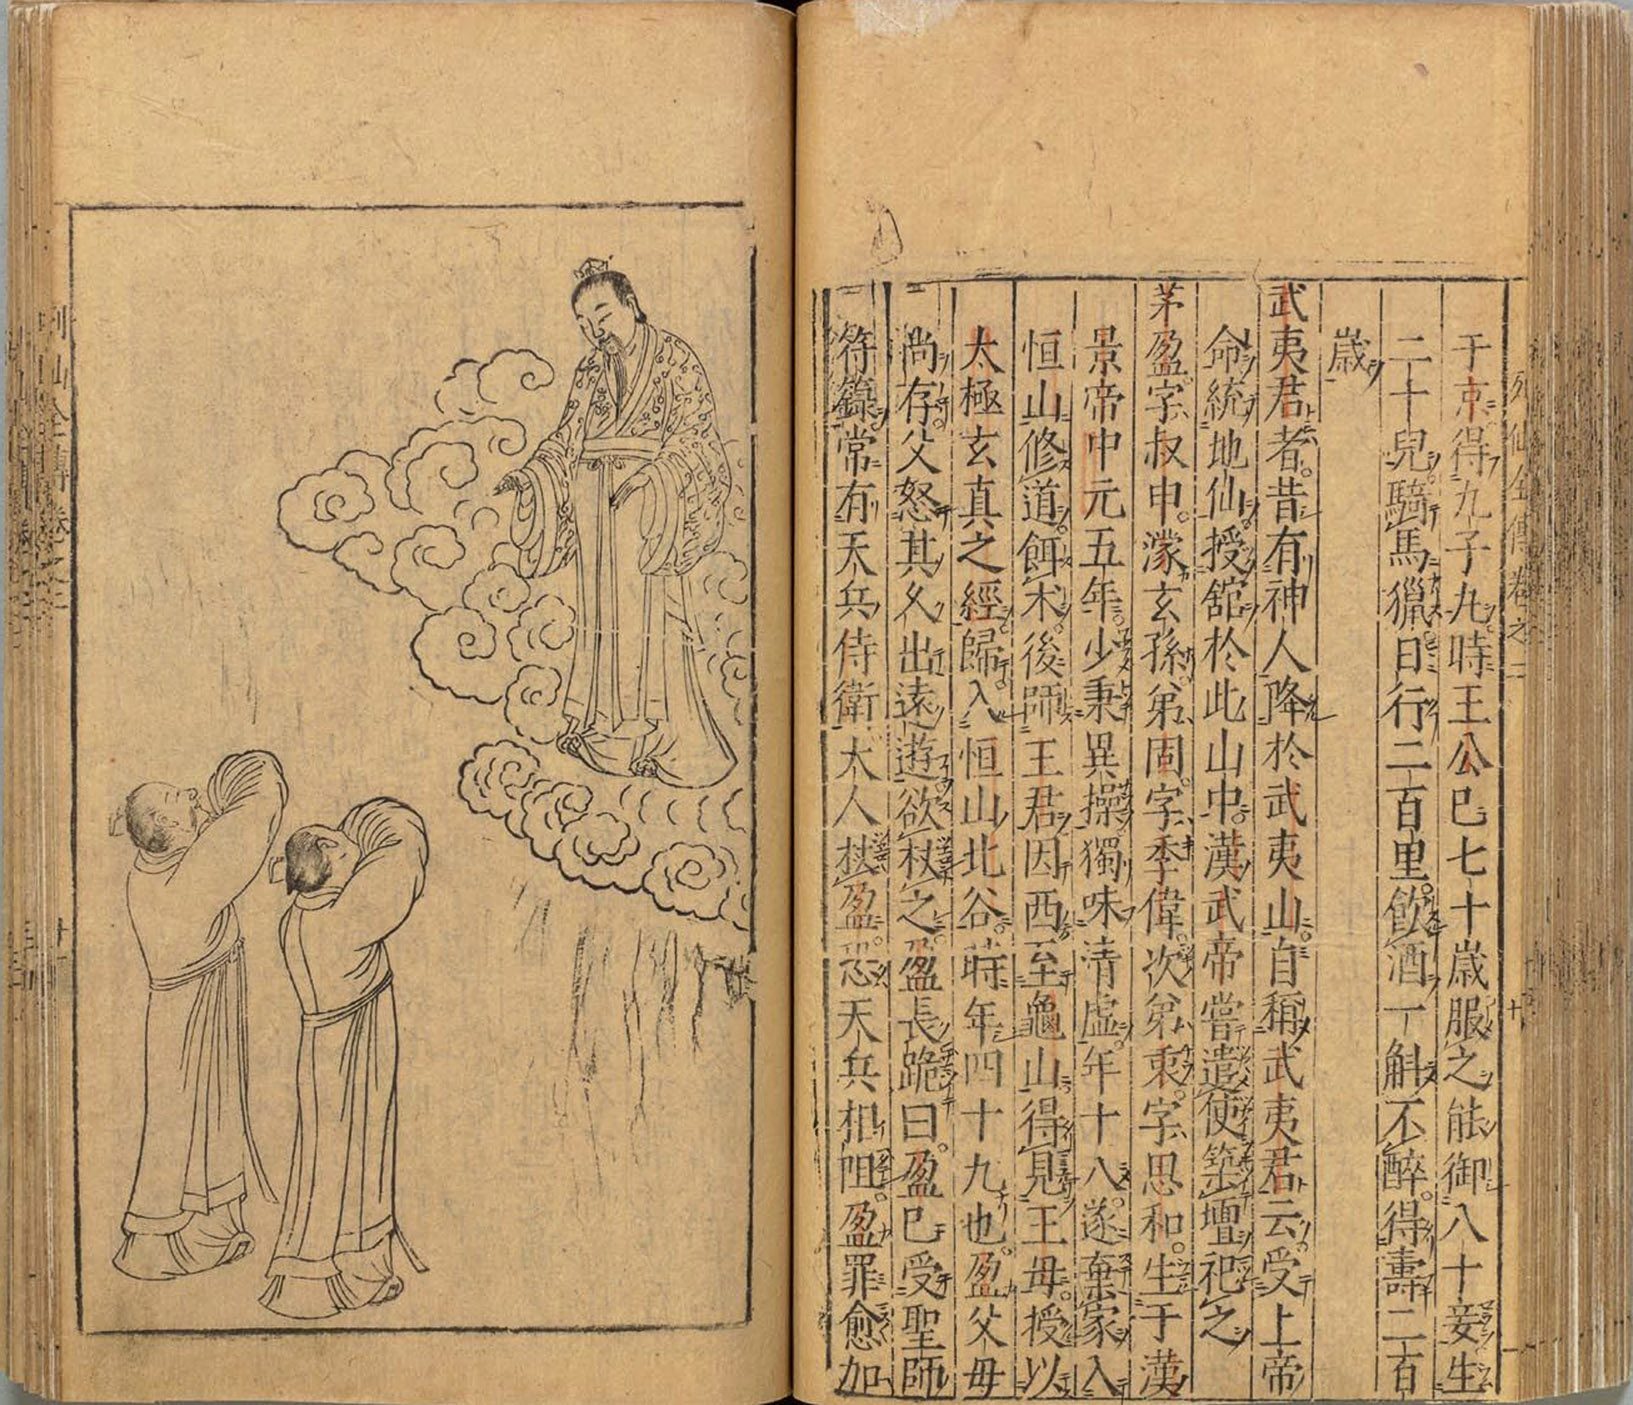 列仙全傳卷之二
十
于京得九子九時王公已七十歳服之能御八十妾生
二十兒騎馬獵日行二百里飲酒一斛不醉得壽二百
歳
武夷君者昔有神人降於武夷山自稱武夷君云受上帝
命統地仙授舘於此山中漢武帝嘗遣使築壇祀之
茅盈字叔申濛玄孫弟固字季偉次弟衷字思和生于漢
景帝中元五年少秉異操獨味清虚年十八遂棄家入
恒山修道餌术後師王君因西至龜山得見王母授以
太極玄真之經歸入恒山北谷時年四十九也盈父母
尚存父怒其久出遠遊欲杖之盈長跪曰盈已受聖師
符籙常有天兵侍衛大人杖盈恐天兵相阻盈罪愈加
列仙全傳卷之二